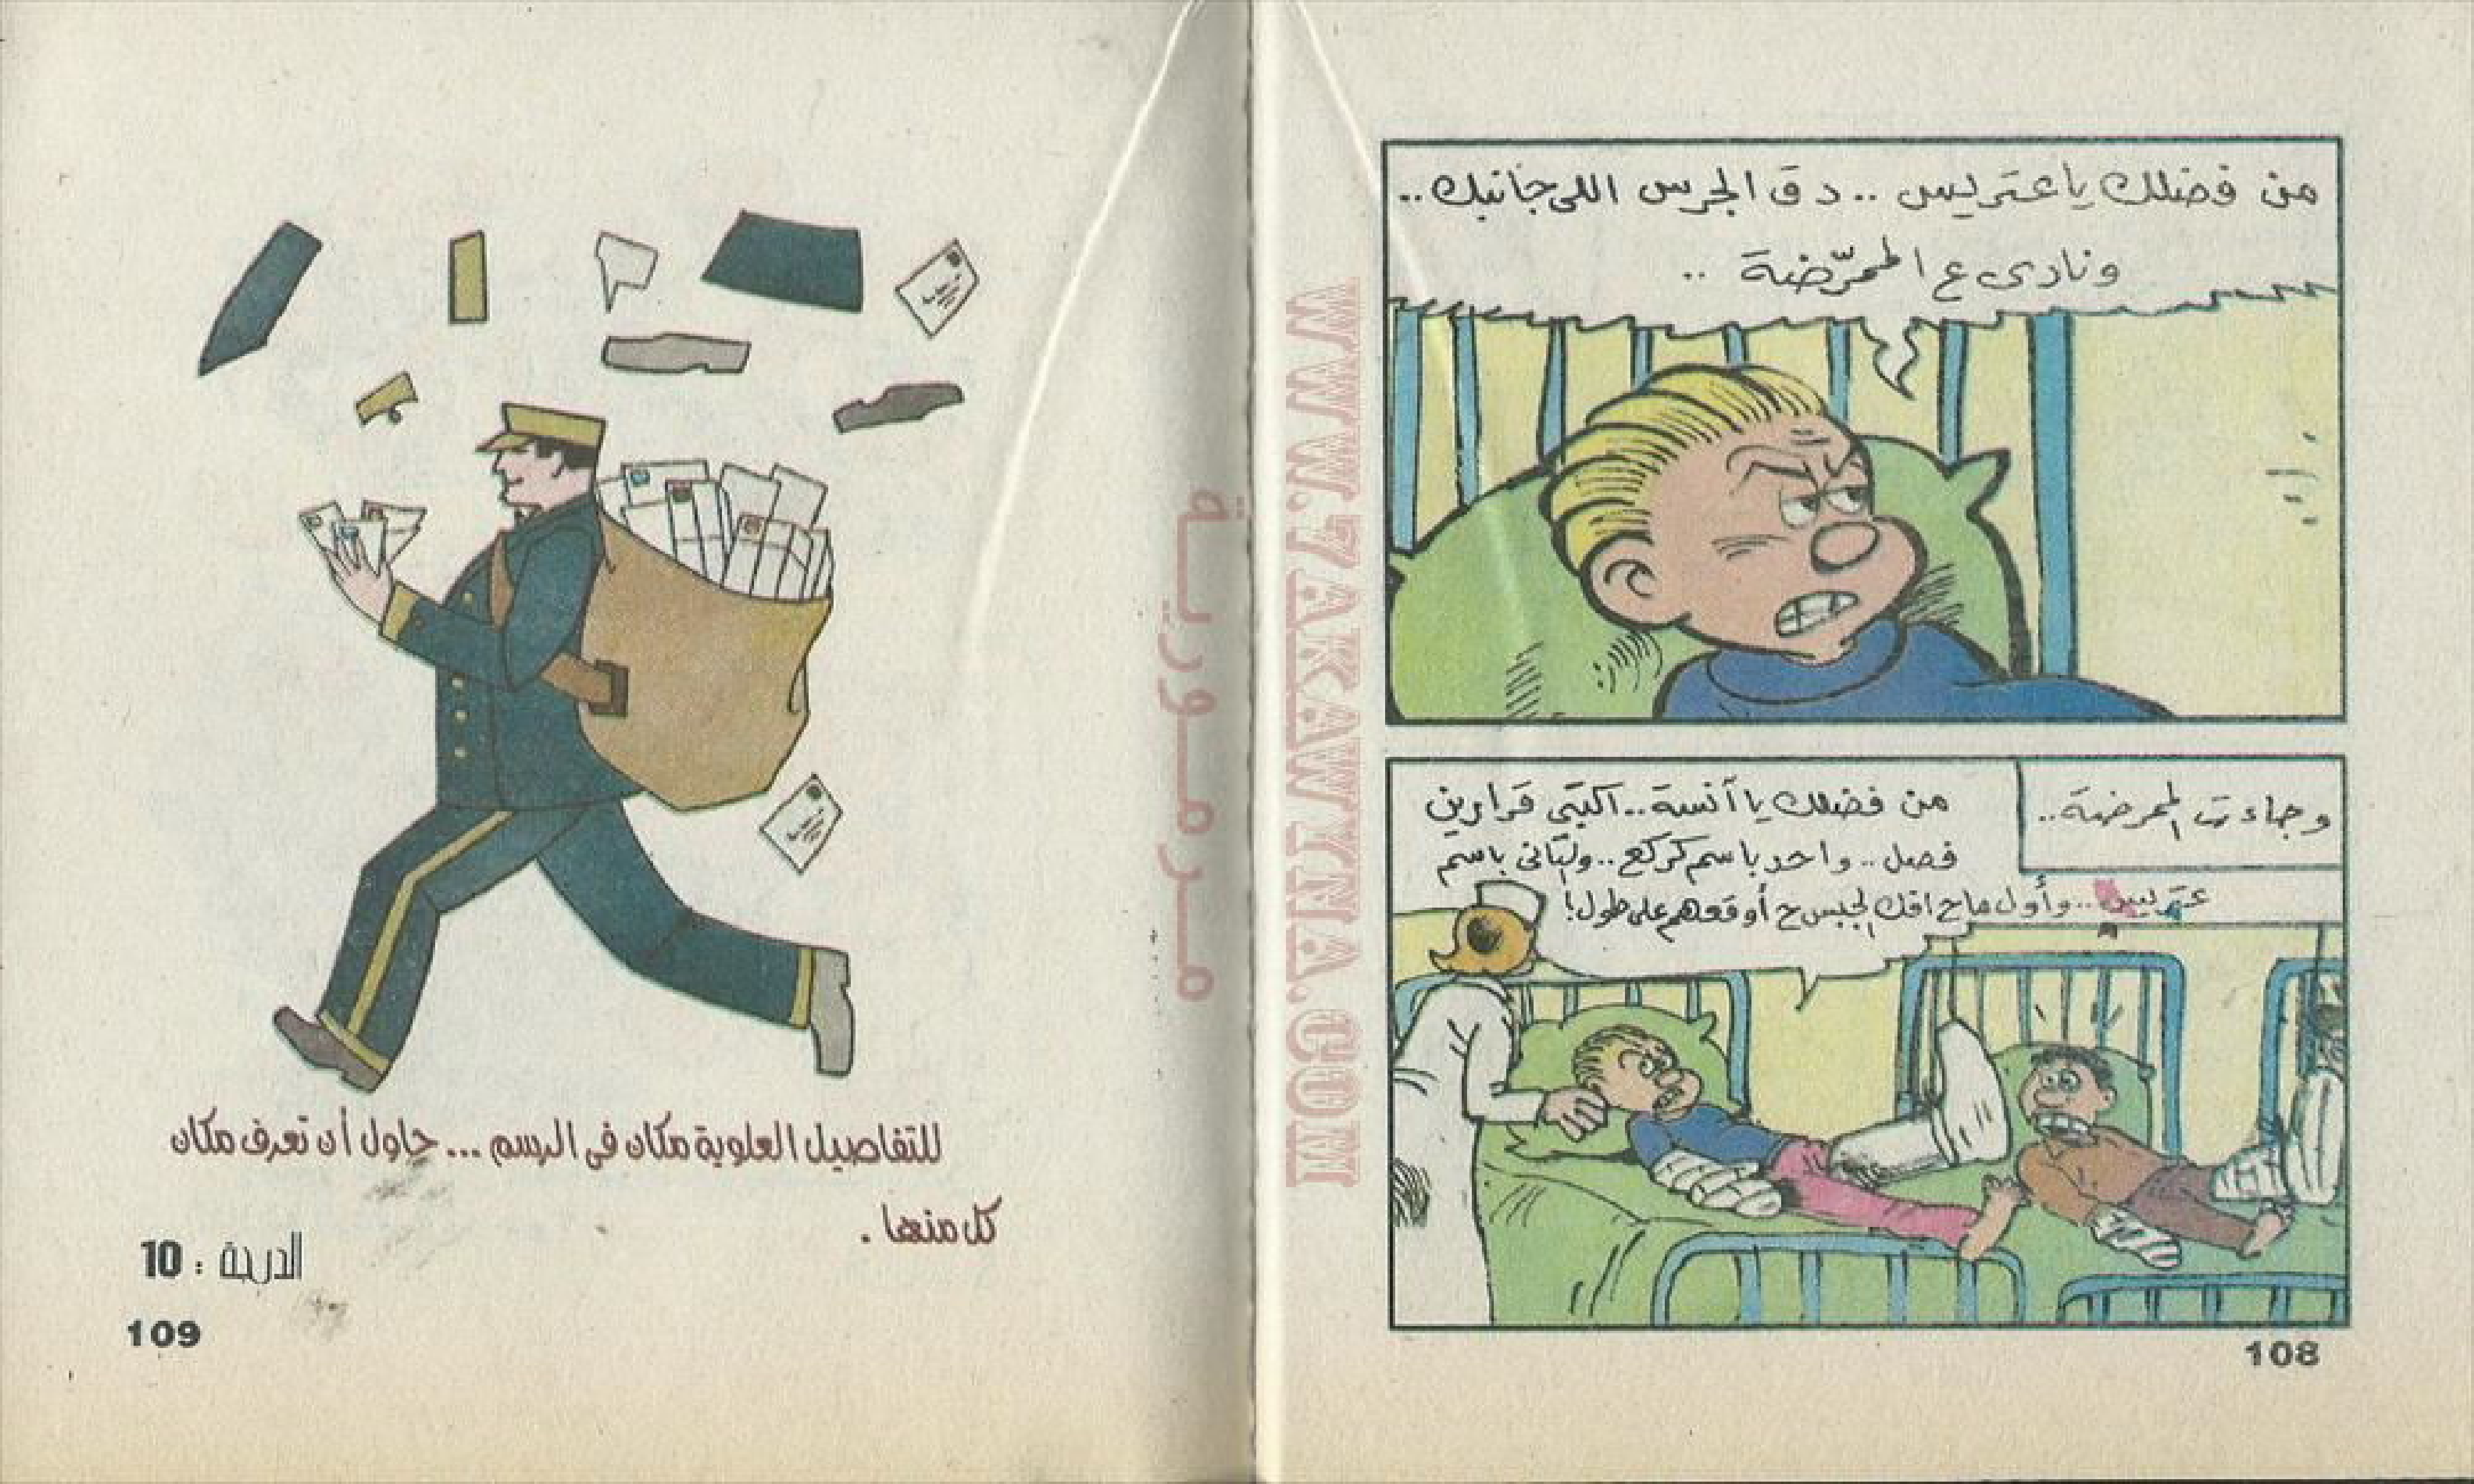 من فضلك يا عتريس .. دق الجرس اللى جانبك ..
ونادى ع الممرّضة ..
وجاءت الممرضة ..
من فضلك يا آنسة .. اكتبى قرارين
فصل .. واحد باسم كركع .. والتانى باسم
عتريس .. وأول ما ح افك الجبس ح أوقعهم على طول !
108
WWW.7AKAWINA.COM
مرمورية
للتفاصيل العلوية مكان فى الرسم ... حاول أن تعرف مكان
كل منها .
الدرجة : 10
109